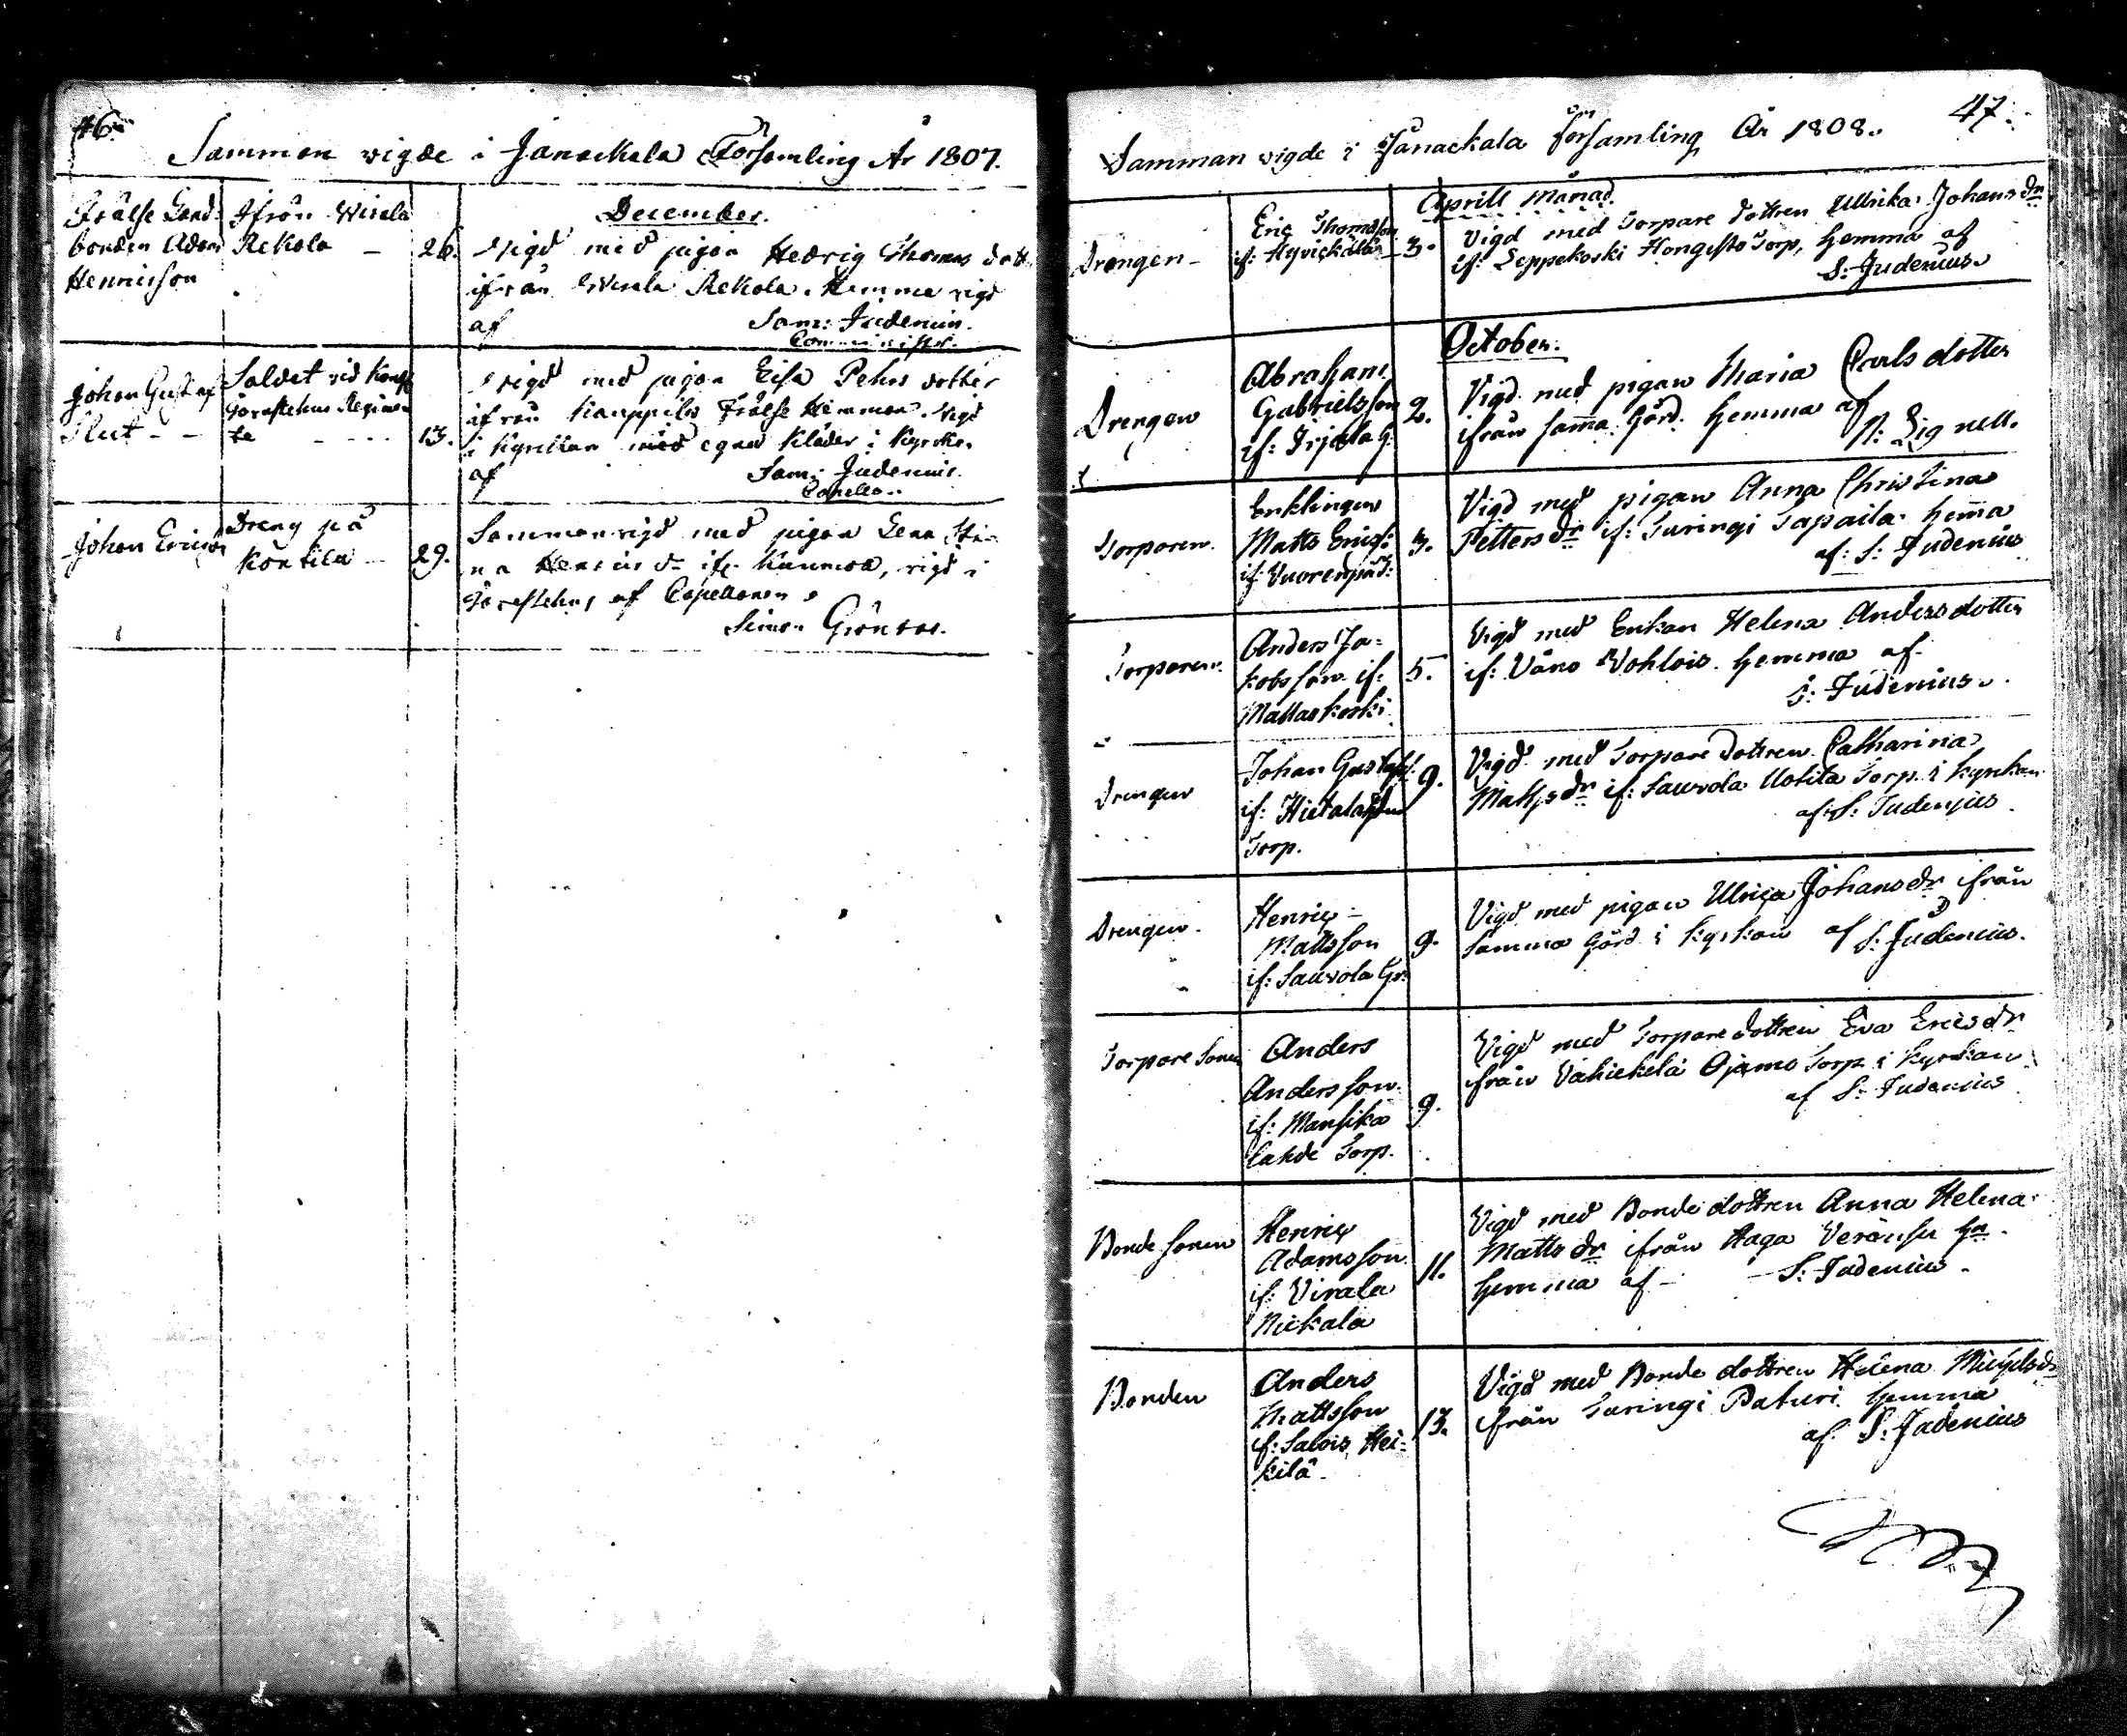 46.
Samman vigde i Janackala Församling År 1807.
December.
Frälse Land-
bonden Adam
Henricson
Ifrån Wirala
Rekola –
26.
Vigd med pigan Hedvig Thomas dott
ifrån Wirala Rekola. Hemma vigd
af Sam: Judenius.
Comminister.
Johan Gustaf
Slut - -
Soldat vid
Tavastehus Regimen
te - - -
13.
Vigd med pigan Lisa Pehrs dotter
ifrån Kauppila Frälse Hemman. Vigd
i Kyrckan med egna Kläder i Kyrckan
af Sam: Judenius.
Capella..
Johan Ericson
Dreng på
Kontila -
29.
Sammanvigd med pigan Lena Sti-
na if. vigd i
Tavastehus af Capellanen
Simon Grönroos.
47.
Samman vigde i Janackala Församling År 1808.
Aprill Månad.
Drengen -
Eric Thomsson
if: Hyvickälä
3.
Vigd med Torpare dottren Ullrika Johans dr
if: Leppekoski Hongisto Torp, hemma af
S: Judenius.
October.
Drengen
Abraham
Gabrielsson
if: Irjala G:
2.
Vigd med pigan Maria Carls dotter
ifrån sama Gård. hemma af
N: Lignell.
Torparen.
Enklingen
Matts Erics:
if: Vuorenpää:
3.
Vigd med pigan Anna Christina
Petters dr if: Turingi Tapaila. hema
af: S: Judenius
Torparen.
Anders Ja=
kobsson if:
Mallaskoski
5.
Vigd med Enkan Helena Andersdotter
if: Väno Wohlois. hemma af
S: Judenius.
Drengen
Johan Gustafs:
if: Hietalahden
Torp.
9.
Vigd med Torpare dottren Catharina
Matts dr if: Sauvola Uotila Torp. i kyrckan
af: S: Judenius.
Drengen.
Henric
Mattsson
if: Sauvola Gr:
9.
Vigd med pigan Ulrica Johans dr ifrån
Samma Gård i kyrkan af S: Judenius.
Torpare Sonen
Anders
Andersson.
if: Mansika
lahde Torp.
9.
Vigd med Torpare dottren Eva Erics dr
ifrån Vähickelä Ojamo Torp i kyrckan
af S: Judenius
Bonde sonen
Henric
Adamsson
if: Virala
Nickala
11.
Vigd med Bonde dottren Anna Helena
Matts dr ifrån Haga
hemma af - - S: Judenius.
Bonden
Anders
Mattsson
if: Salois Hei=
kilä.
13.
Vigd med Bonde dottren Helena Michels dr
ifrån Turingi Paturi hemma
af. S: Judenius